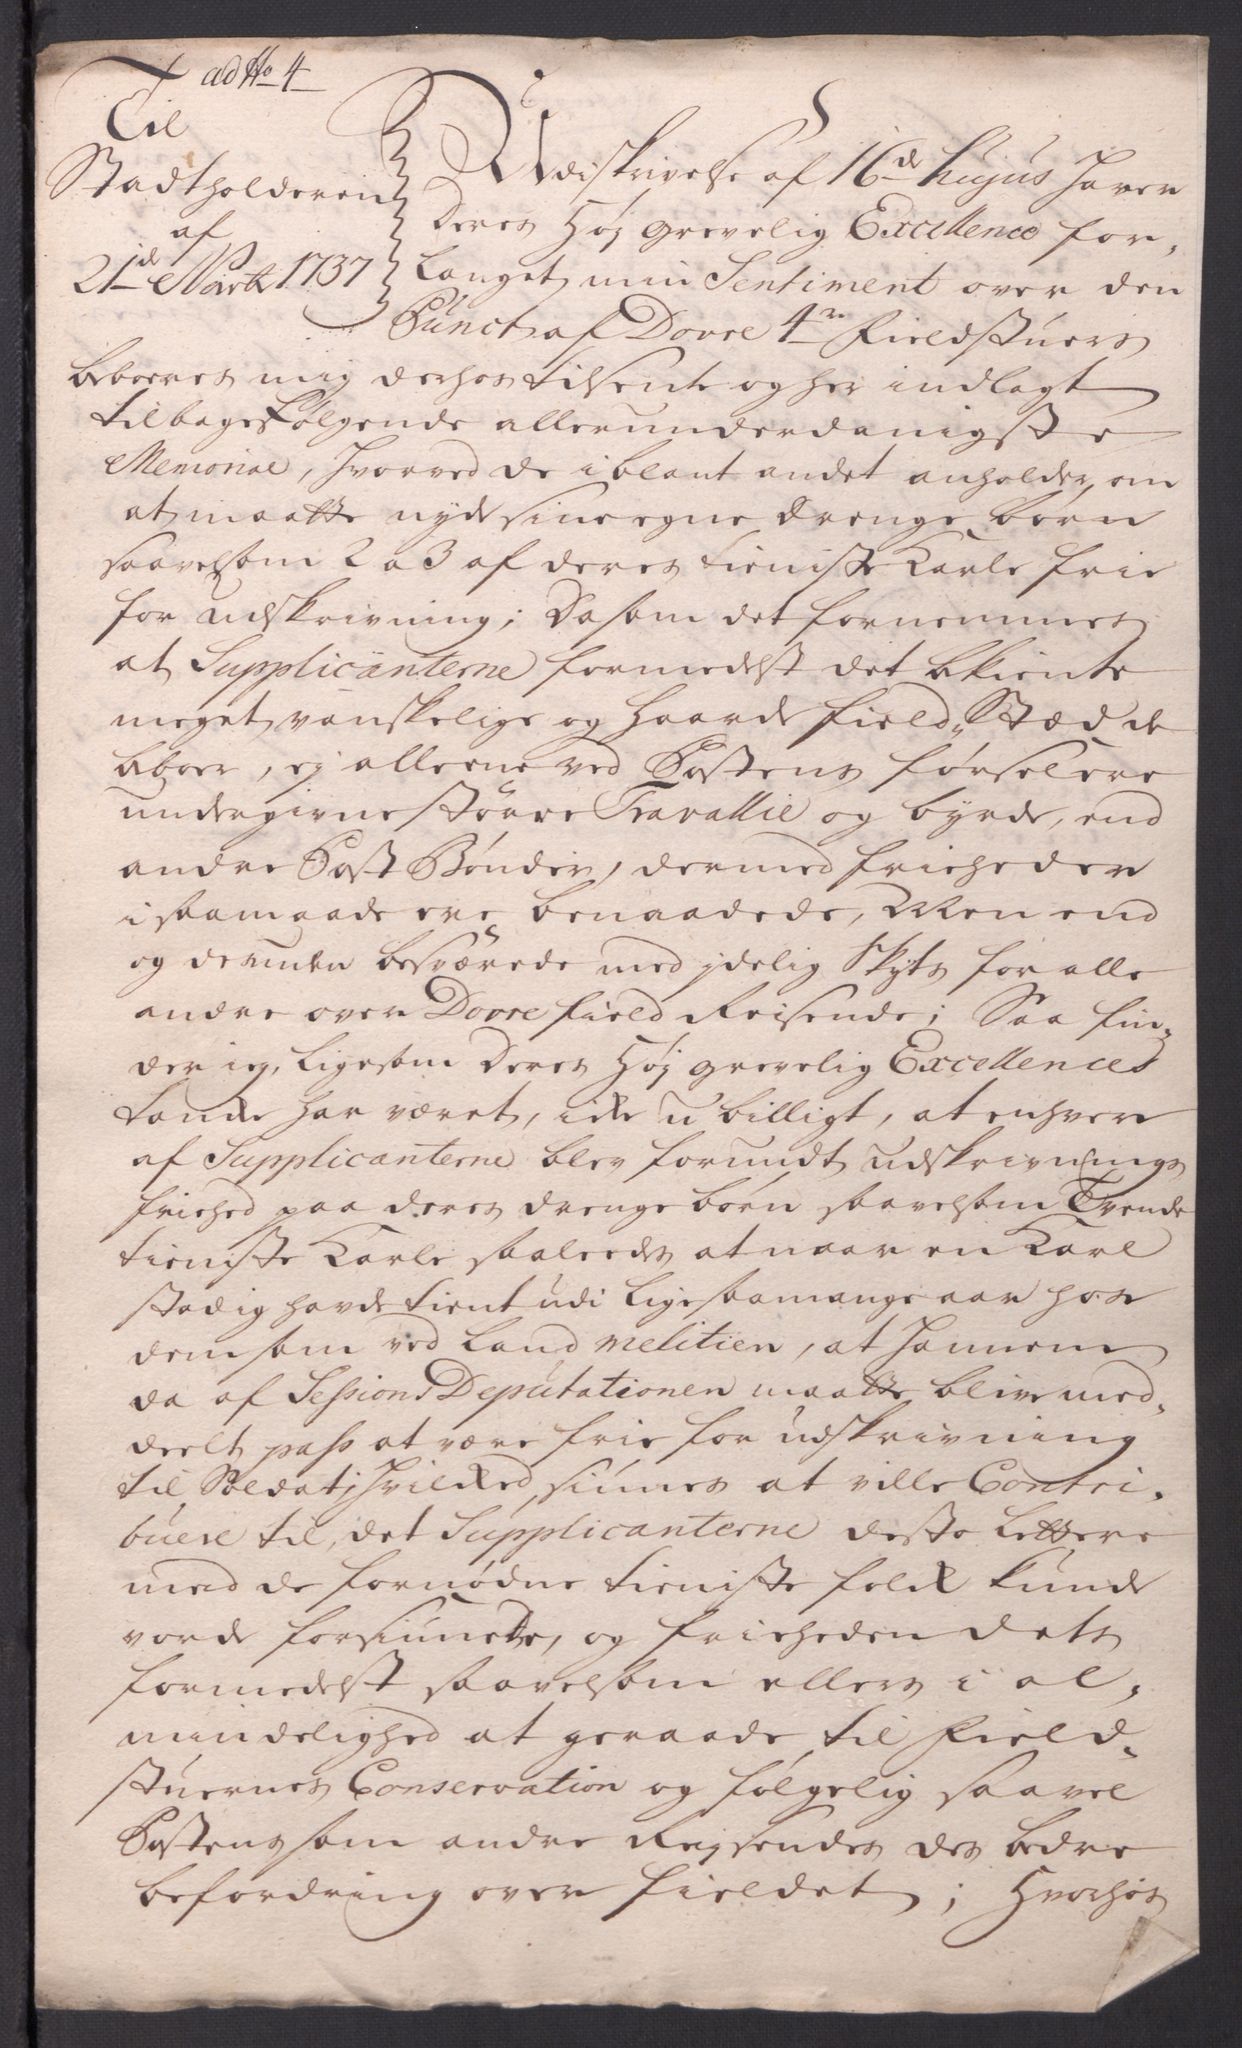 ad No 4
Til
Stadtholderen
af
21de Martz 1737
Udi skrivelse af 16de hujus haver
Deres Høj Grevelig Excellence for,
langet min Sentiment over den
Punct af Dovre 4re Fieldstuers
beboeres mig derhos tilsente og her indlagt
tilbagefølgende allerunderdanigste
Memorial, hvorved de iblant andet anholder om
at maatte nyde sine egne drenge børn
saavelsom 2 a 3 af deres tieniste Karle frie
for udskrivning; Da som det fornemmes
at Supplicanterne formedelst det bekiente
meget vanskelige og haarde field-Stæd de
beboer, ej alleene ved Postens førsel ere
undergivne større Travallie og byrde, end
andre Post Bønder, dermed frieheder
i saamaade ere benaadede, Men end
og desuden besværede med jdelig Skyts for alle
andre over Dovre field Reisende; Saa fin,
der ieg, ligesom Deres Høj Grevelig Excellences
tanke har været, icke u billigt, at enhver
af Supplicanterne blev forundt udskrivnings
friehed paa deres drenge børn saavelsom Tvende
tieniste Karle saaledes at naar en Karl
stadig havde tient udi ligesaamange aar hos
dem som ved Land Melitien, at hannem
da af Sessions Deputationen maatte blive med,
deelt pass at være frie for udskrivning
til Soldat; hvilked siunes at ville Contri,
buere til, det Supplicanterne desto lettere
med de fornødne tieniste folck kunde
vorde forsiunede, og frieheden dets
formedelst saavelsom ellers i al,
mindelighed at geraade til Field,
stuernes Conservation og følgelig saavel
Postens som andre Rejsendes des bedre
befordring over fieldet; Hvorhos